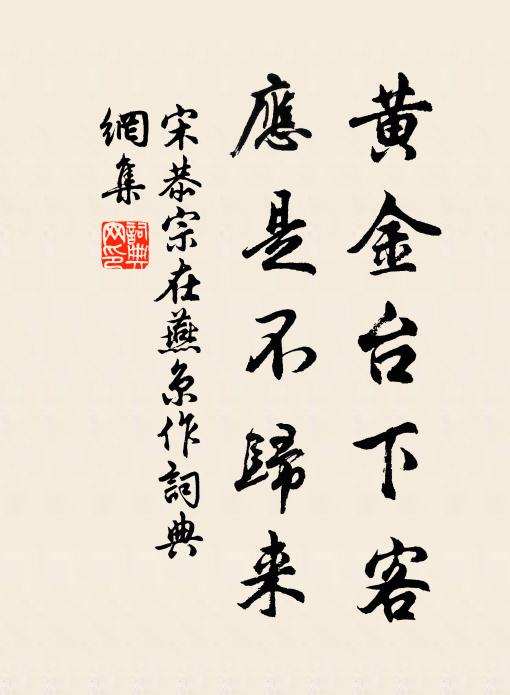 黄金台下客
應是不歸来
宋恭宗在燕京作詞典
網集
詞典网印